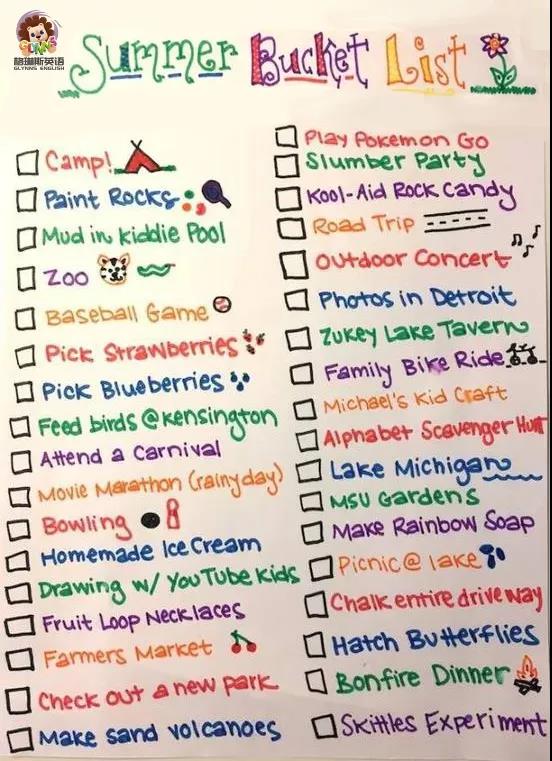 格琳斯英语
GLYNNS ENGLISH
Summer Bucket List
Camp!
Paint Rocks
Mud in Kiddie Pool
Zoo
Baseball Game
Pick Strawberries
Pick Blueberries
Feed birds @ Kensington
Attend a Carnival
Movie Marathon (rainy day)
Bowling
Homemade Ice Cream
Drawing w/ YouTube Kids
Fruit Loop Necklaces
Farmers Market
Check out a new park
Make sand volcanoes
Play Pokemon Go
Slumber Party
Kool-Aid Rock Candy
Road Trip
Outdoor Concert
Photos in Detroit
Zukey Lake Tavern
Family Bike Ride
Michael's Kid Craft
Alphabet Scavenger Hunt
Lake Michigan
MSU Gardens
Make Rainbow Soap
Picnic @ lake
Chalk entire driveway
Hatch Butterflies
Bonfire Dinner
Skittles Experiment